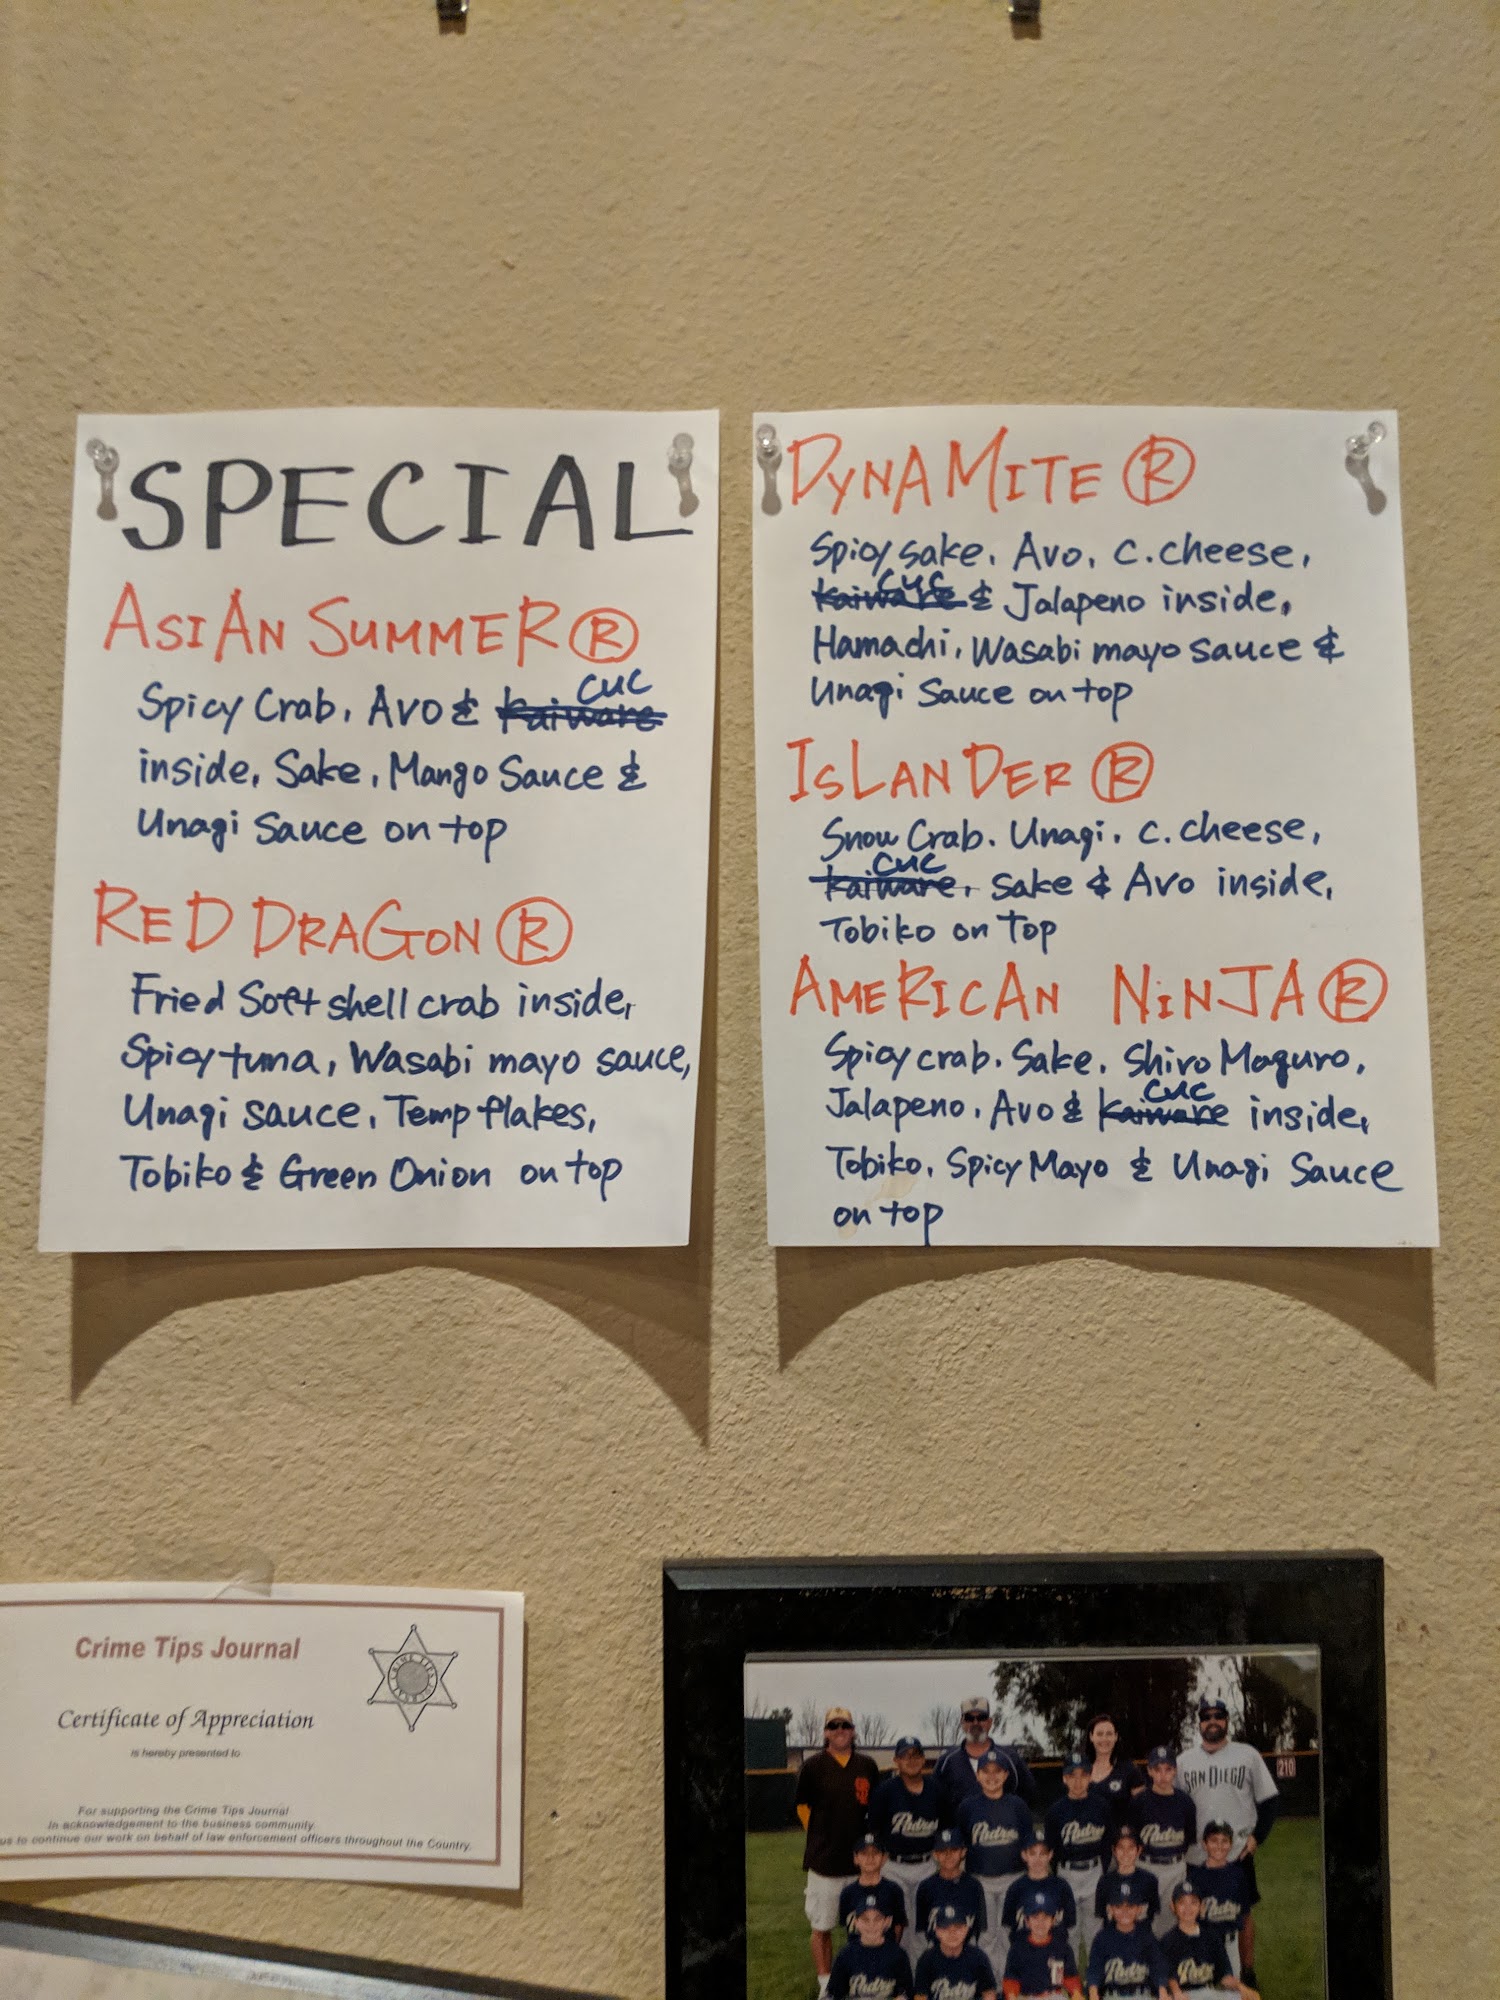 SPECIAL
ASIAN SUMMER Ⓡ
Spicy Crab, Avo & kaiware cuc
inside, Sake, Mango Sauce &
Unagi Sauce on top
RED DRAGON Ⓡ
Fried Soft shell crab inside,
Spicy tuna, Wasabi mayo sauce,
Unagi sauce, Temp flakes,
Tobiko & Green Onion on top
DYNAMITE Ⓡ
Spicy sake, Avo, c.cheese,
kaiware cuc & Jalapeno inside,
Hamachi, Wasabi mayo sauce &
Unagi Sauce on top
ISLANDER Ⓡ
Snow Crab. Unagi, c.cheese,
kaiware, cuc sake & Avo inside,
Tobiko on top
AMERICAN NINJA Ⓡ
Spicy crab, Sake, Shiro Maguro,
Jalapeno, Avo & kaiware cuc inside,
Tobiko, Spicy Mayo & Unagi Sauce
on top
Crime Tips Journal
Certificate of Appreciation
is hereby presented to
For supporting the Crime Tips Journal
In acknowledgement to the business community
us to continue our work on behalf of law enforcement officers throughout the Country.
SAN DIEGO
210
Padres
Padres
Padres
Padres